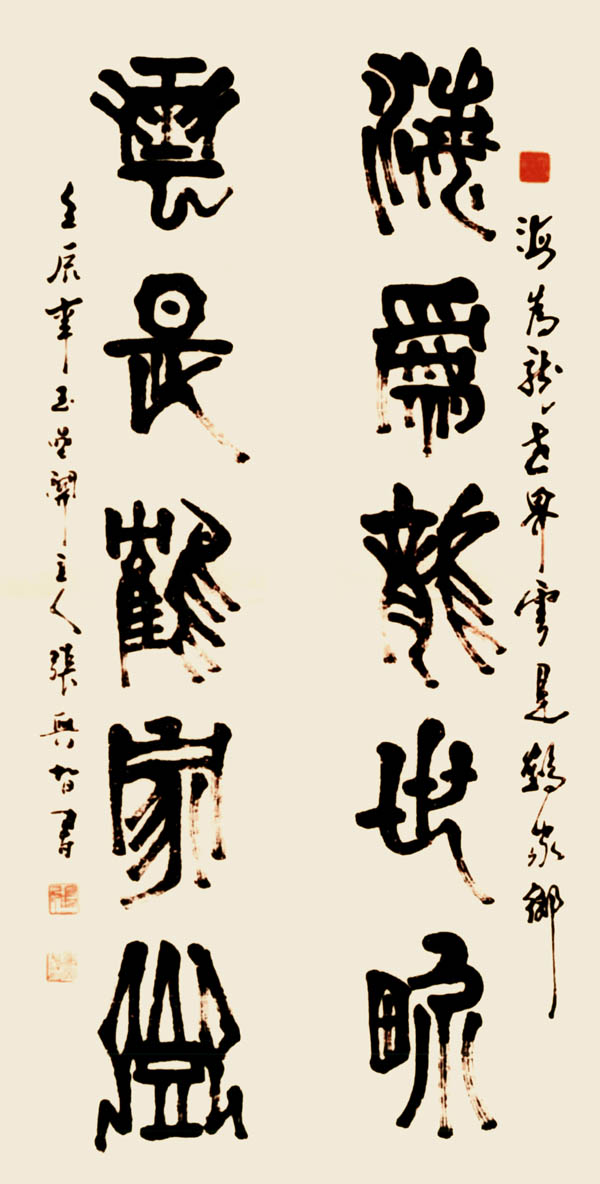 海為龍世界雲是鶴家鄉
海爲龍世界
雲是鶴家鄉
壬辰年玉主人張興智書